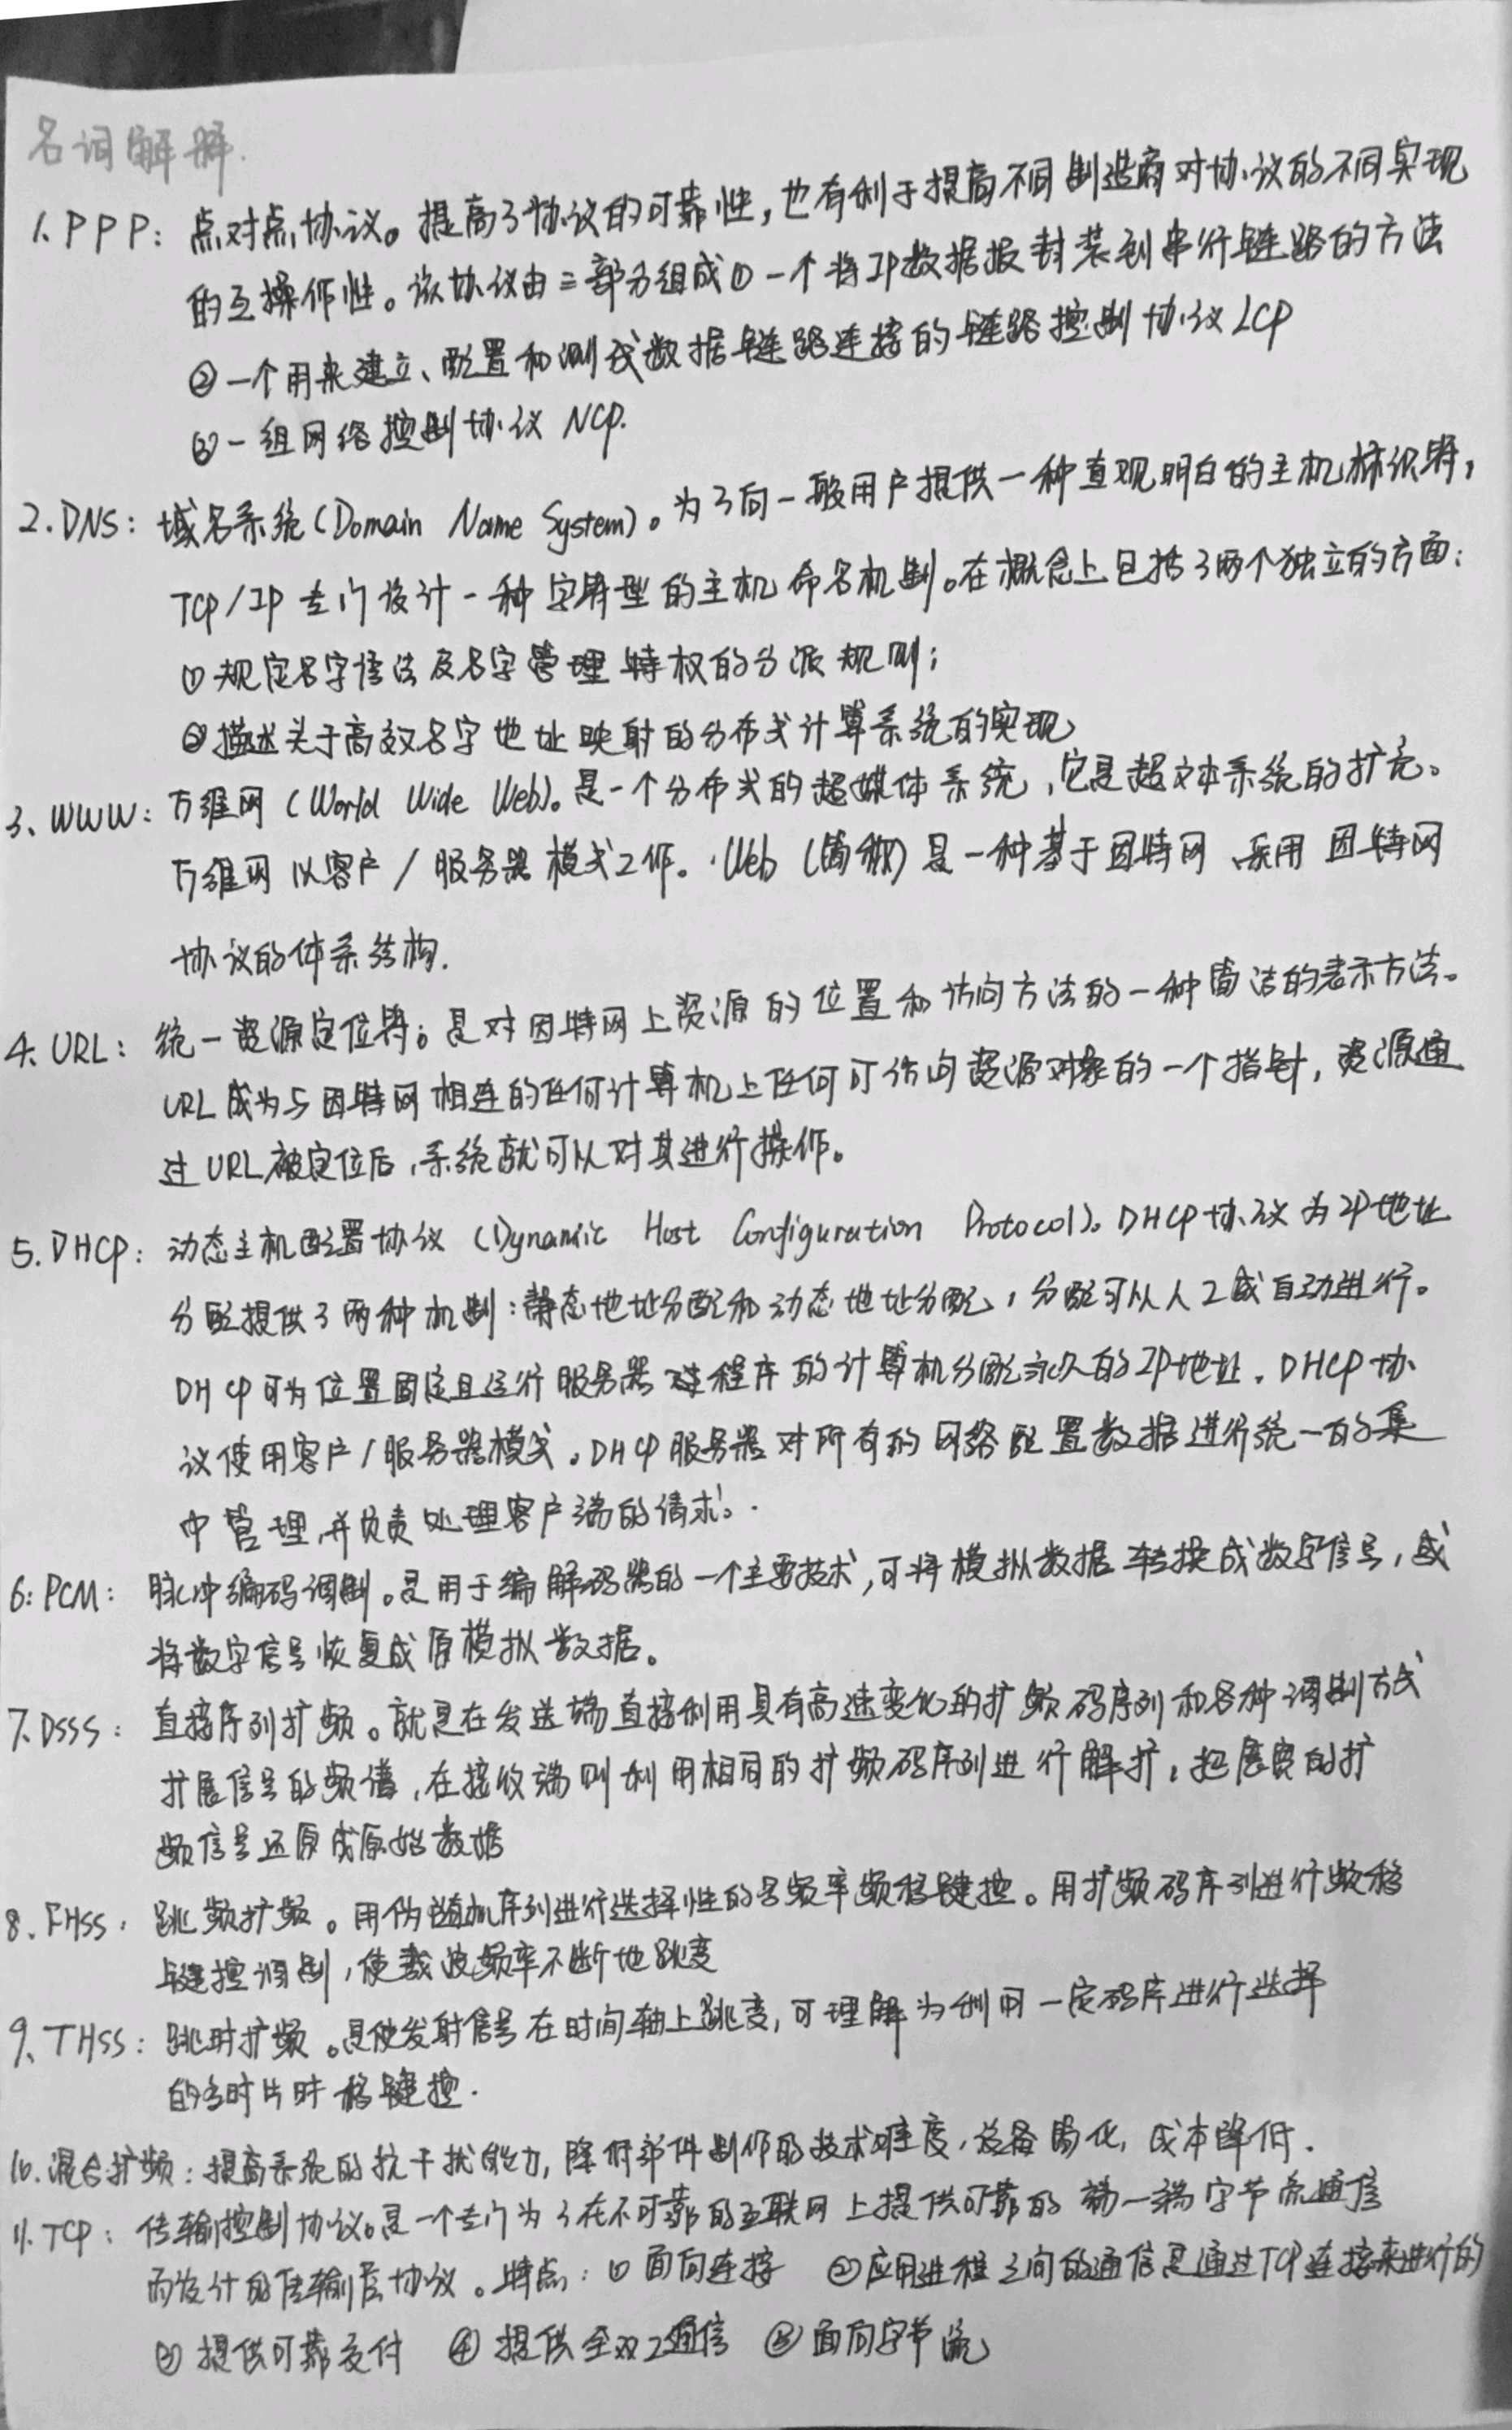 名词解释.
1. PPP: 点对点协议。提高了协议的可靠性,也有利于提高不同制造商对协议的不同实现
的互操作性。该协议由三部分组成①一个将IP数据报封装到串行链路的方法
②一个用来建立、配置和测试数据链路连接的链路控制协议LCP
③一组网络控制协议 NCP.
2. DNS: 域名系统(Domain Name System)。为了向一般用户提供一种直观明白的主机标识符,
TCP/IP专门设计一种字符型的主机命名机制。在概念上包括了两个独立的方面:
①规定名字语法及名字管理特权的分派规则;
②描述关于高效名字地址映射的分布式计算系统的实现
3、WWW: 万维网(World Wide Web)。是一个分布式的超媒体系统,它是超文本系统的扩充。
万维网以客户/服务器模式工作。Web(简称)是一种基于因特网、采用因特网
协议的体系结构.
4. URL: 统一资源定位符。是对因特网上资源的位置和访问方法的一种简洁的表示方法。
URL成为与因特网相连的任何计算机上任何可访问资源对象的一个指针,资源通
过URL被定位后,系统就可以对其进行操作。
5. DHCP: 动态主机配置协议(Dynamic Host Configuration Protocol)。DHCP协议为IP地址
分配提供了两种机制:静态地址分配和动态地址分配,分配可以人工或自动进行。
DHCP可为位置固定且运行服务器进程序的计算机分配永久的IP地址.DHCP协
议使用客户/服务器模式。DHCP服务器对所有的网络配置数据进行统一的集
中管理,并负责处理客户端的请求。
6: PCM: 脉冲编码调制。是用于编解码器的一个主要技术,可将模拟数据转换成数字信号,或
将数字信号恢复成原模拟数据。
7. DSSS: 直接序列扩频。就是在发送端直接利用具有高速变化的扩频码序列和各种调制方式
扩展信号的频谱,在接收端则利用相同的扩频码序列进行解扩,把展宽的扩
频信号还原成原始数据
8. FHSS: 跳频扩频。用伪随机序列进行选择性的多频率频移键控。用扩频码序列进行频移
键控调制,使载波频率不断地跳变
9. THSS: 跳时扩频。是使发射信号在时间轴上跳变,可理解为利用一定码序进行选择
的多时片时移键控.
10. 混合扩频:提高系统的抗干扰能力,降低部件制作的技术难度,设备简化,成本降低.
11. TCP: 传输控制协议。是一个专门为了在不可靠的互联网上提供可靠的端一端字节流通信
而设计的传输层协议。特点:①面向连接 ②应用进程之间的通信是通过TCP连接来进行的
③提供可靠交付 ④提供全双工通信 ⑤面向字节流